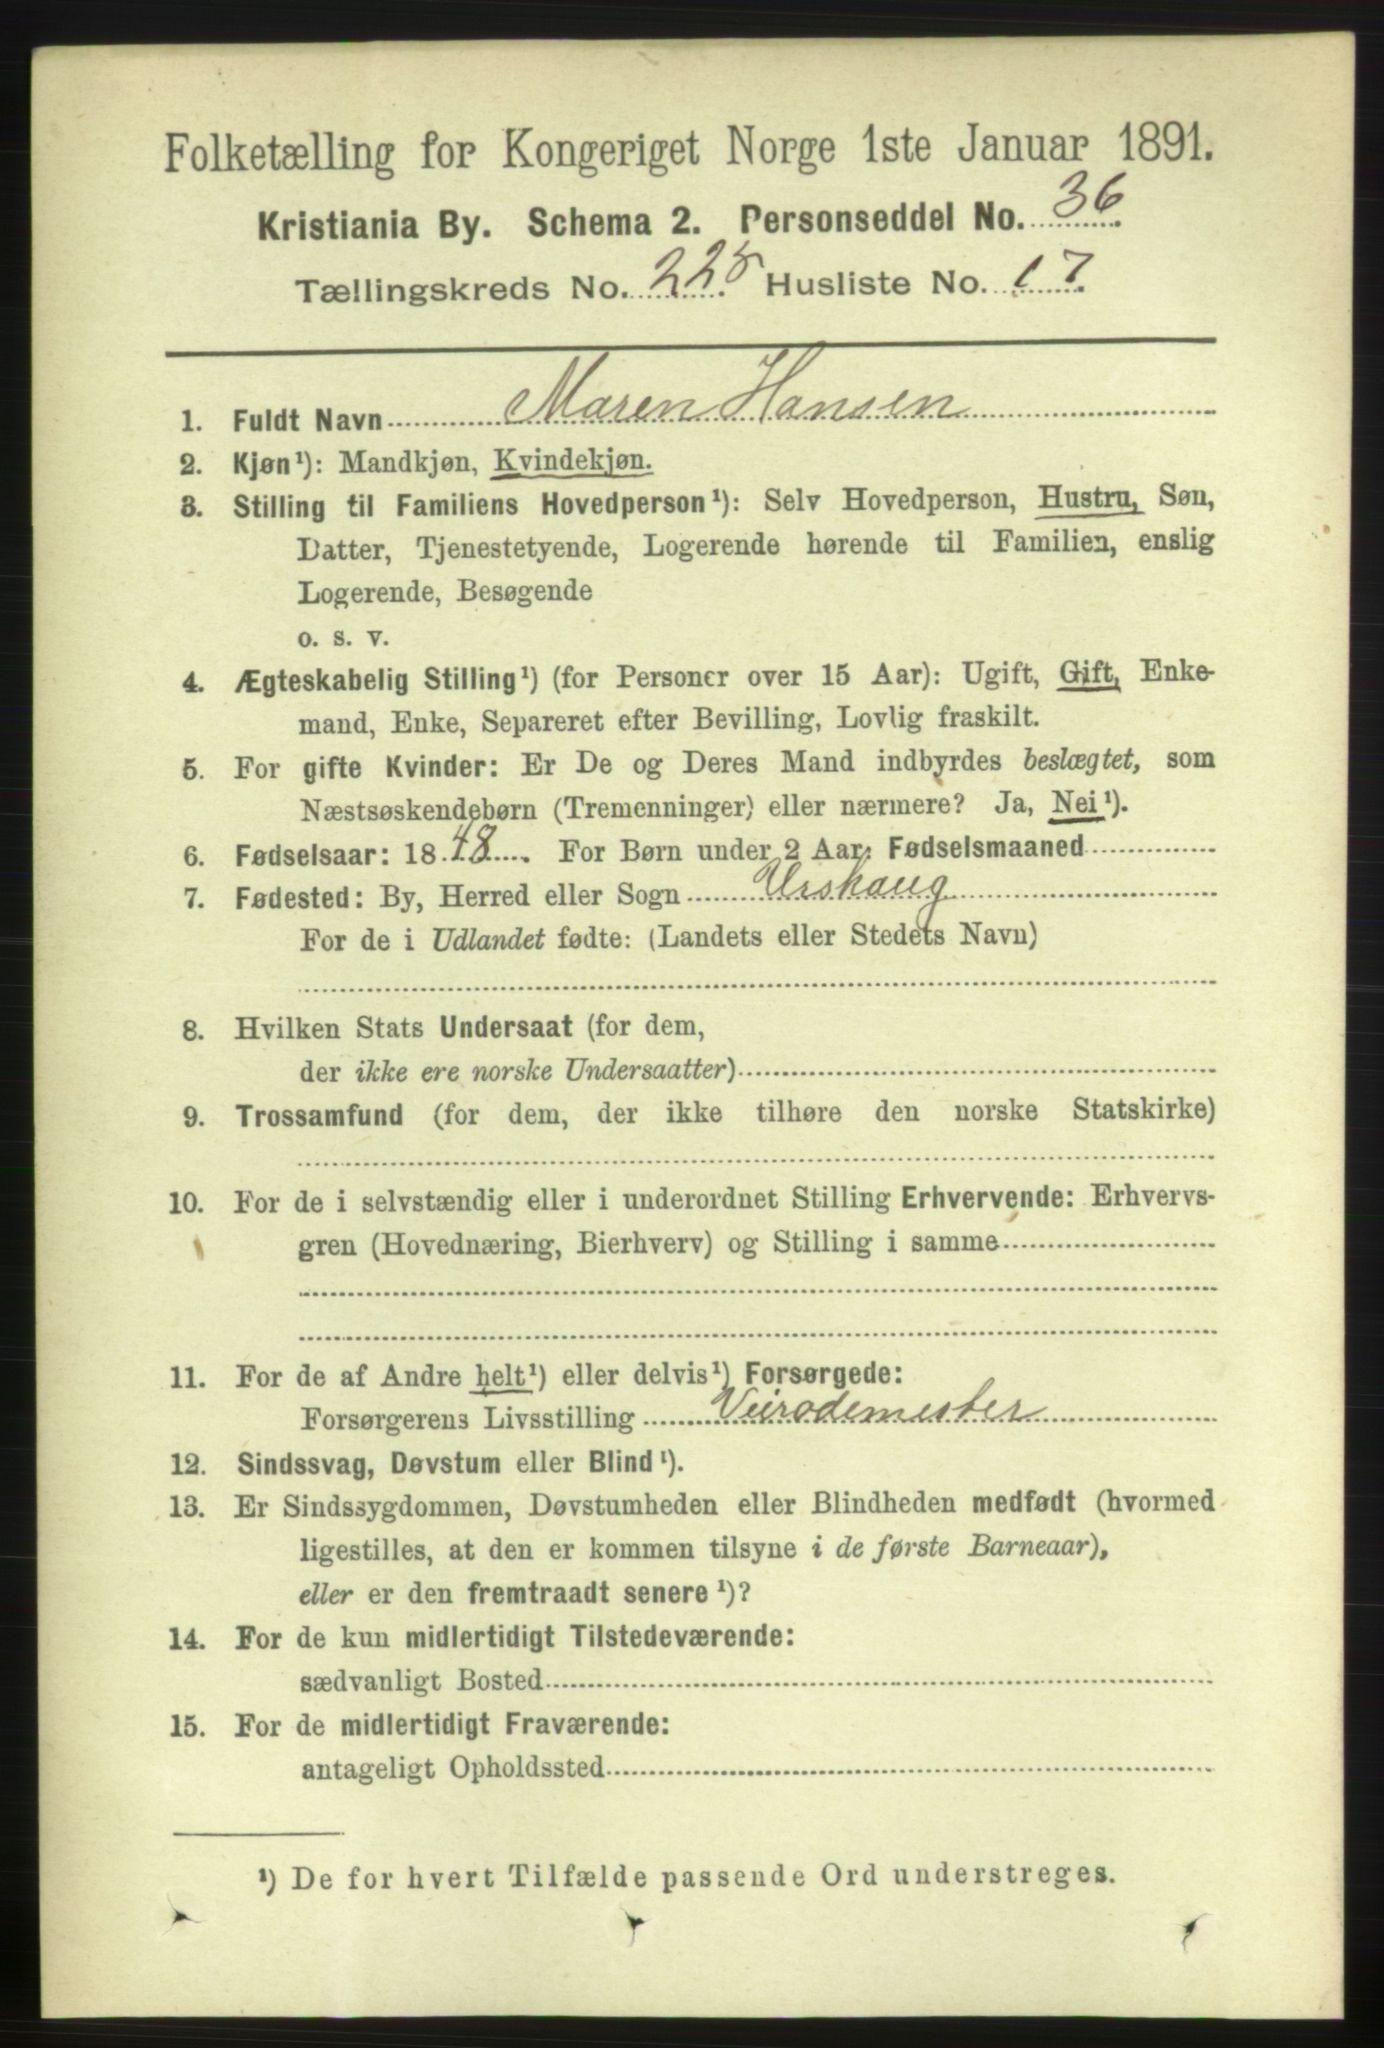 Folketælling for Kongeriget Norge 1ste Januar 1891.
Kristiania By. Schema 2. Personseddel No. 36
Tællingskreds No. 225 Husliste No. 17
1. Fuldt Navn Maren Hansen
2. Kjøn¹): Mandkjøn, Kvindekjøn.
3. Stilling til Familiens Hovedperson¹): Selv Hovedperson, Hustru, Søn,
Datter, Tjenestetyende, Logerende hørende til Familien, enslig
Logerende, Besøgende
o. s. v.
4. Ægteskabelig Stilling¹) (for Personer over 15 Aar): Ugift, Gift, Enke-
mand, Enke, Separeret efter Bevilling, Lovlig fraskilt.
5. For gifte Kvinder: Er De og Deres Mand indbyrdes beslægtet, som
Næstsøskendebørn (Tremenninger) eller nærmere? Ja, Nei¹).
6. Fødselsaar: 1848. For Børn under 2 Aar: Fødselsmaaned
7. Fødested: By, Herred eller Sogn Urskaug
For de i Udlandet fødte: (Landets eller Stedets Navn)
8. Hvilken Stats Undersaat (for dem,
der ikke ere norske Undersaatter)
9. Trossamfund (for dem, der ikke tilhøre den norske Statskirke)
10. For de i selvstændig eller i underordnet Stilling Erhvervende: Erhvervs-
gren (Hovednæring, Bierhverv) og Stilling i samme
11. For de af Andre helt¹) eller delvis¹) Forsørgede:
Forsørgerens Livsstilling Veirodemester
12. Sindssvag, Døvstum eller Blind¹).
13. Er Sindssygdommen, Døvstumheden eller Blindheden medfødt (hvormed
ligestilles, at den er kommen tilsyne i de første Barneaar),
eller er den fremtraadt senere¹)?
14. For de kun midlertidigt Tilstedeværende:
sædvanligt Bosted
15. For de midlertidigt Fraværende:
antageligt Opholdssted
¹) De for hvert Tilfælde passende Ord understreges.